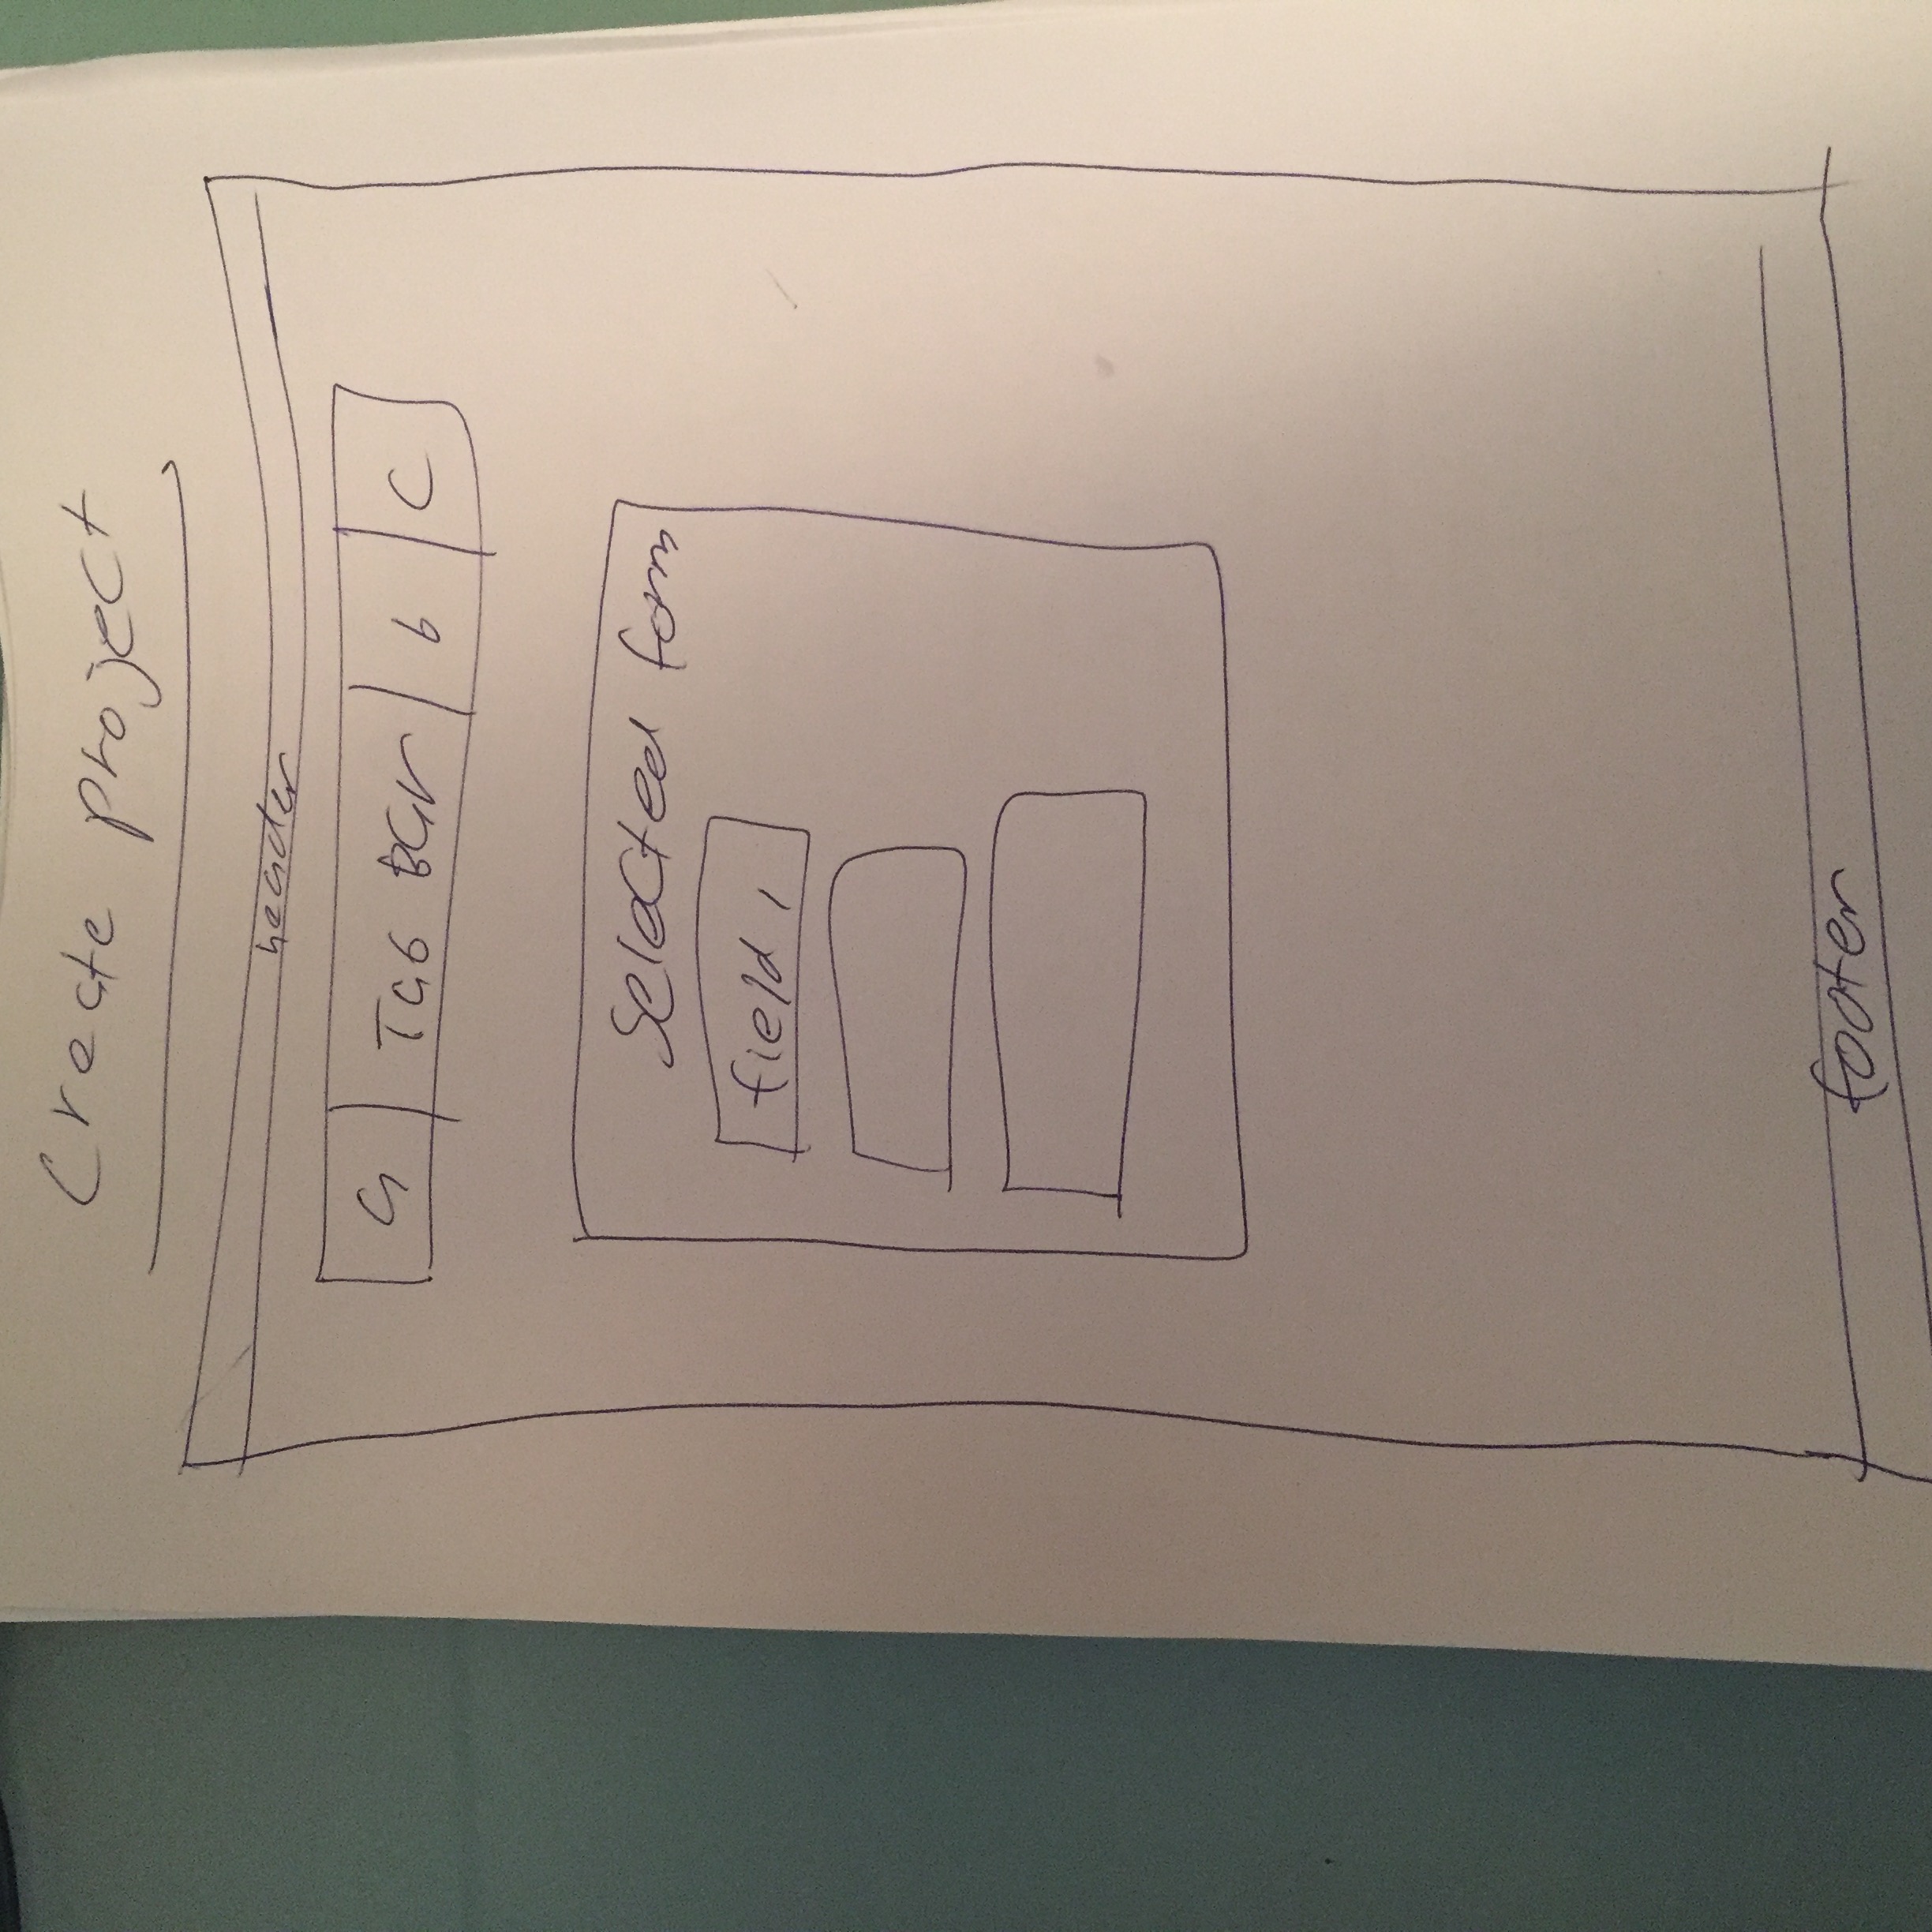 Create project
header
a Tab Bar b C
Selected form
field 1
footer